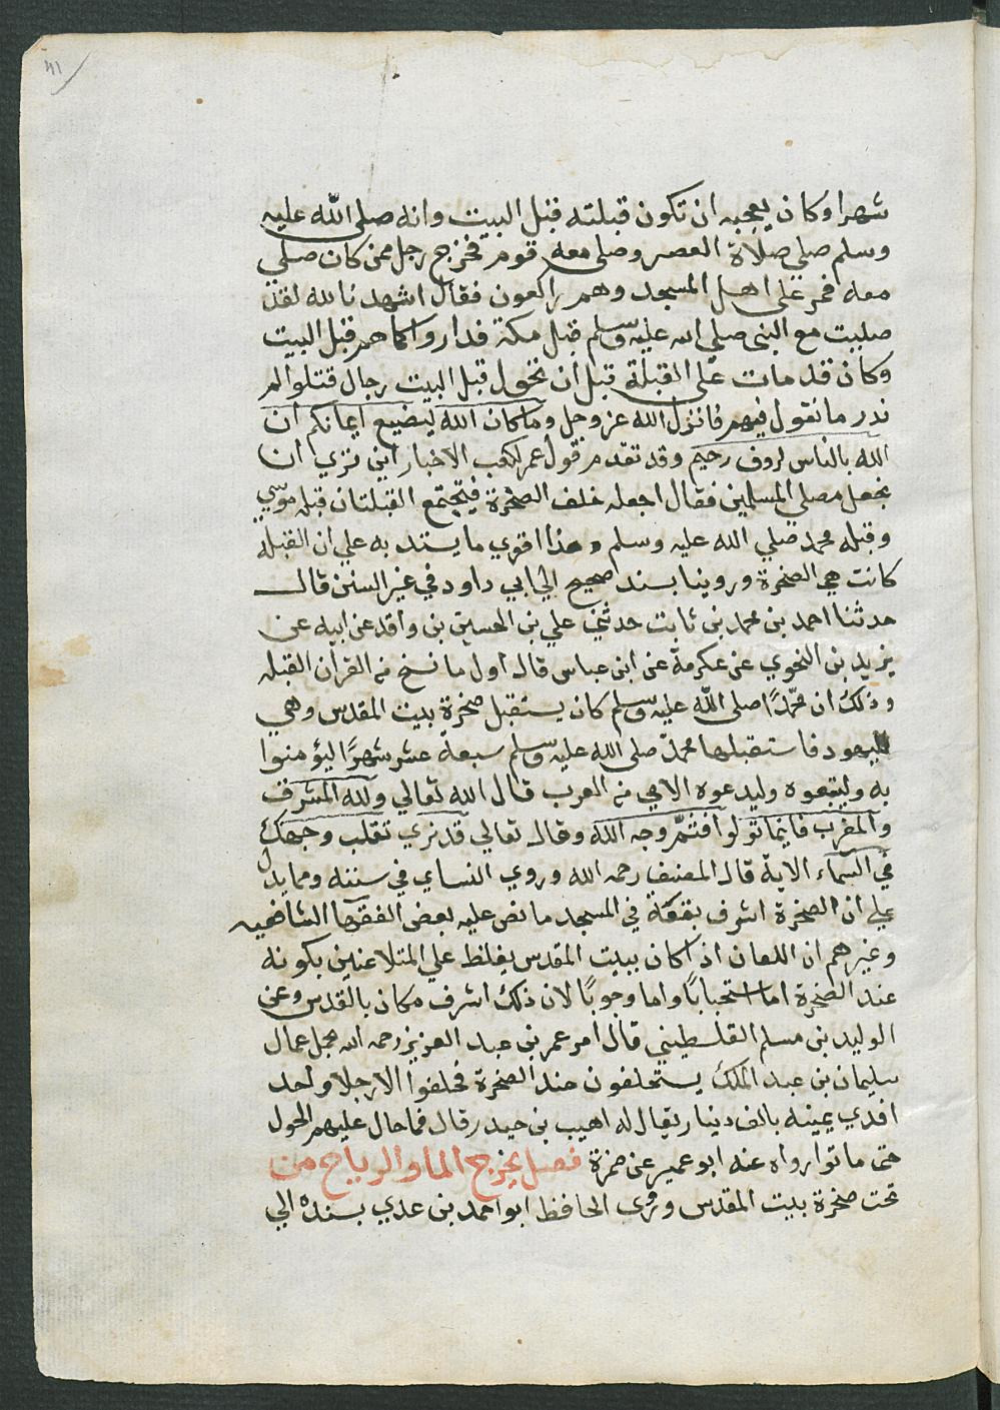 ٤١
شهرا وكان يعجبه ان تكون قبلته قبل البيت وانه صلى الله عليه
وسلم صلي صلاة العصر وصلى معه قوم فخرج رجل ممن كان صلي
معه فمر على اهل المسجد وهم راكعون فقال اشهد بالله لقد
صليت مع النبي صلى الله عليه وسلم قبل مكة فداروا كما هم قبل البيت
وكان قد مات على القبلة قبل ان تحول قبل البيت رجال قتلوا لم
ندر ما نقول فيهم فانزل الله عز وجل وما كان الله ليضيع ايمانكم ان
الله بالناس لروف رحيم وقد تقدم قول عمر لكعب الاخبار اين تري ان
نجعل مصلي المسلمين فقال اجعله خلف الصخرة فتجتمع القبلتان قبلة موسي
وقبله محمد صلي الله عليه وسلم وهذا اقوي ما يستد به علي ان القبلة
كانت هي الصخرة وروينا بسند صحيح الي ابي داود في غير السنن قال
حدثنا احمد بن محمد بن ثابت حدثني علي بن الحسين بن واقد عن ابيه عن
يزيد بن النحوي عن عكرمة عن ابن عباس قال اول ما نسخ من القران القبله
وذلك ان محمدًا صلى الله عليه وسلم كان يستقبل صخرة بيت المقدس وهي
لليهود فاستقبلها محمد صلى الله عليه وسلم سبعة عشر شهرًا ليؤمنوا
به وليتبعوه وليدعوه الامي من العرب قال الله تعالي ولله المشرف
والمغرب فاينما تولوا فثمّ وجه الله وقال تعالي قد نري تقلب وجهك
في السماء الاية قال المصنف رحمه الله وروي النساي في سننه ومما يدل
علي ان الصخرة اشرف بقعة في المسجد ما نص عليه بعض الفقها الشافعيه
وغيرهم ان اللعان اذا كان ببيت المقدس يغلظ علي المتلاعنين بكونه
عند الصخرة اما استحبابًا واما وجوبًا لان ذلك اشرف مكان بالقدس وعن
الوليد بن مسلم الفلسطيني قال امر عمر بن عبد العزيز رحمه الله بحمل عمال
سليمان بن عبد الملك يستحلفون عند الصخرة فحلفوا الا رجلا واحد
افدي يمينه بالف دينار يقال له اهيب بن حيدر قال فما حال عليهم الحول
حتى ماتوا رواه عنه ابو عمير عن ضمرة فصل يخرج الما والرياح من
تحت صخرة بيت المقدس وروى الحافظ ابو احمد بن عدي بسنده الي